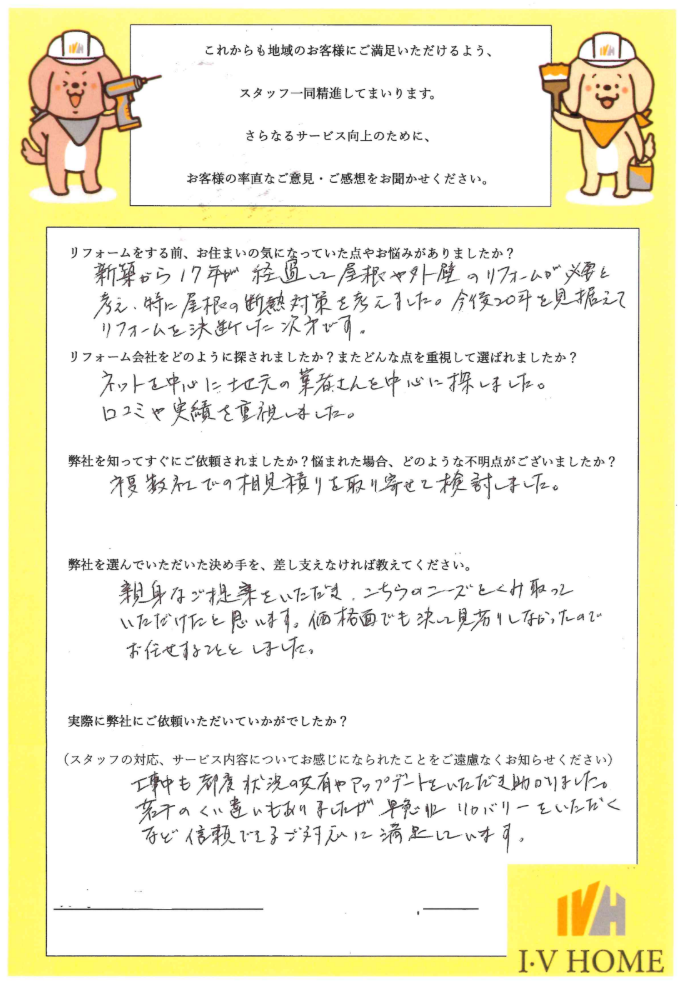 これからも地域のお客様にご満足いただけるよう、
スタッフ一同精進してまいります。
さらなるサービス向上のために、
お客様の率直なご意見・ご感想をお聞かせください。
リフォームをする前、お住まいの気になっていた点やお悩みがありましたか？
新築から17年が経過して屋根や外壁のリフォームが必要と
考え、特に屋根の断熱対策を考えました。今後20年を見据えて
リフォームを決断した次第です。
リフォーム会社をどのように探されましたか？またどんな点を重視して選ばれましたか？
ネットを中心に地元の業者さんを中心に探しました。
口コミや実績を重視しました。
弊社を知ってすぐにご依頼されましたか？悩まれた場合、どのような不明点がございましたか？
複数社での相見積りを取り寄せて検討しました。
弊社を選んでいただいた決め手を、差し支えなければ教えてください。
親身なご提案をいただき、こちらのニーズをくみ取って
いただけたと思います。価格面でも決して見劣りしなかったので
お任せすることとしました。
実際に弊社にご依頼いただいていかがでしたか？
（スタッフの対応、サービス内容についてお感じになられたことをご遠慮なくお知らせください）
工事中も都度状況の共有やアップデートをいただき助かりました。
若干のくい違いもありましたが早急にリカバリーをいただく
など信頼できるご対応に満足しています。
IVH
I・V HOME